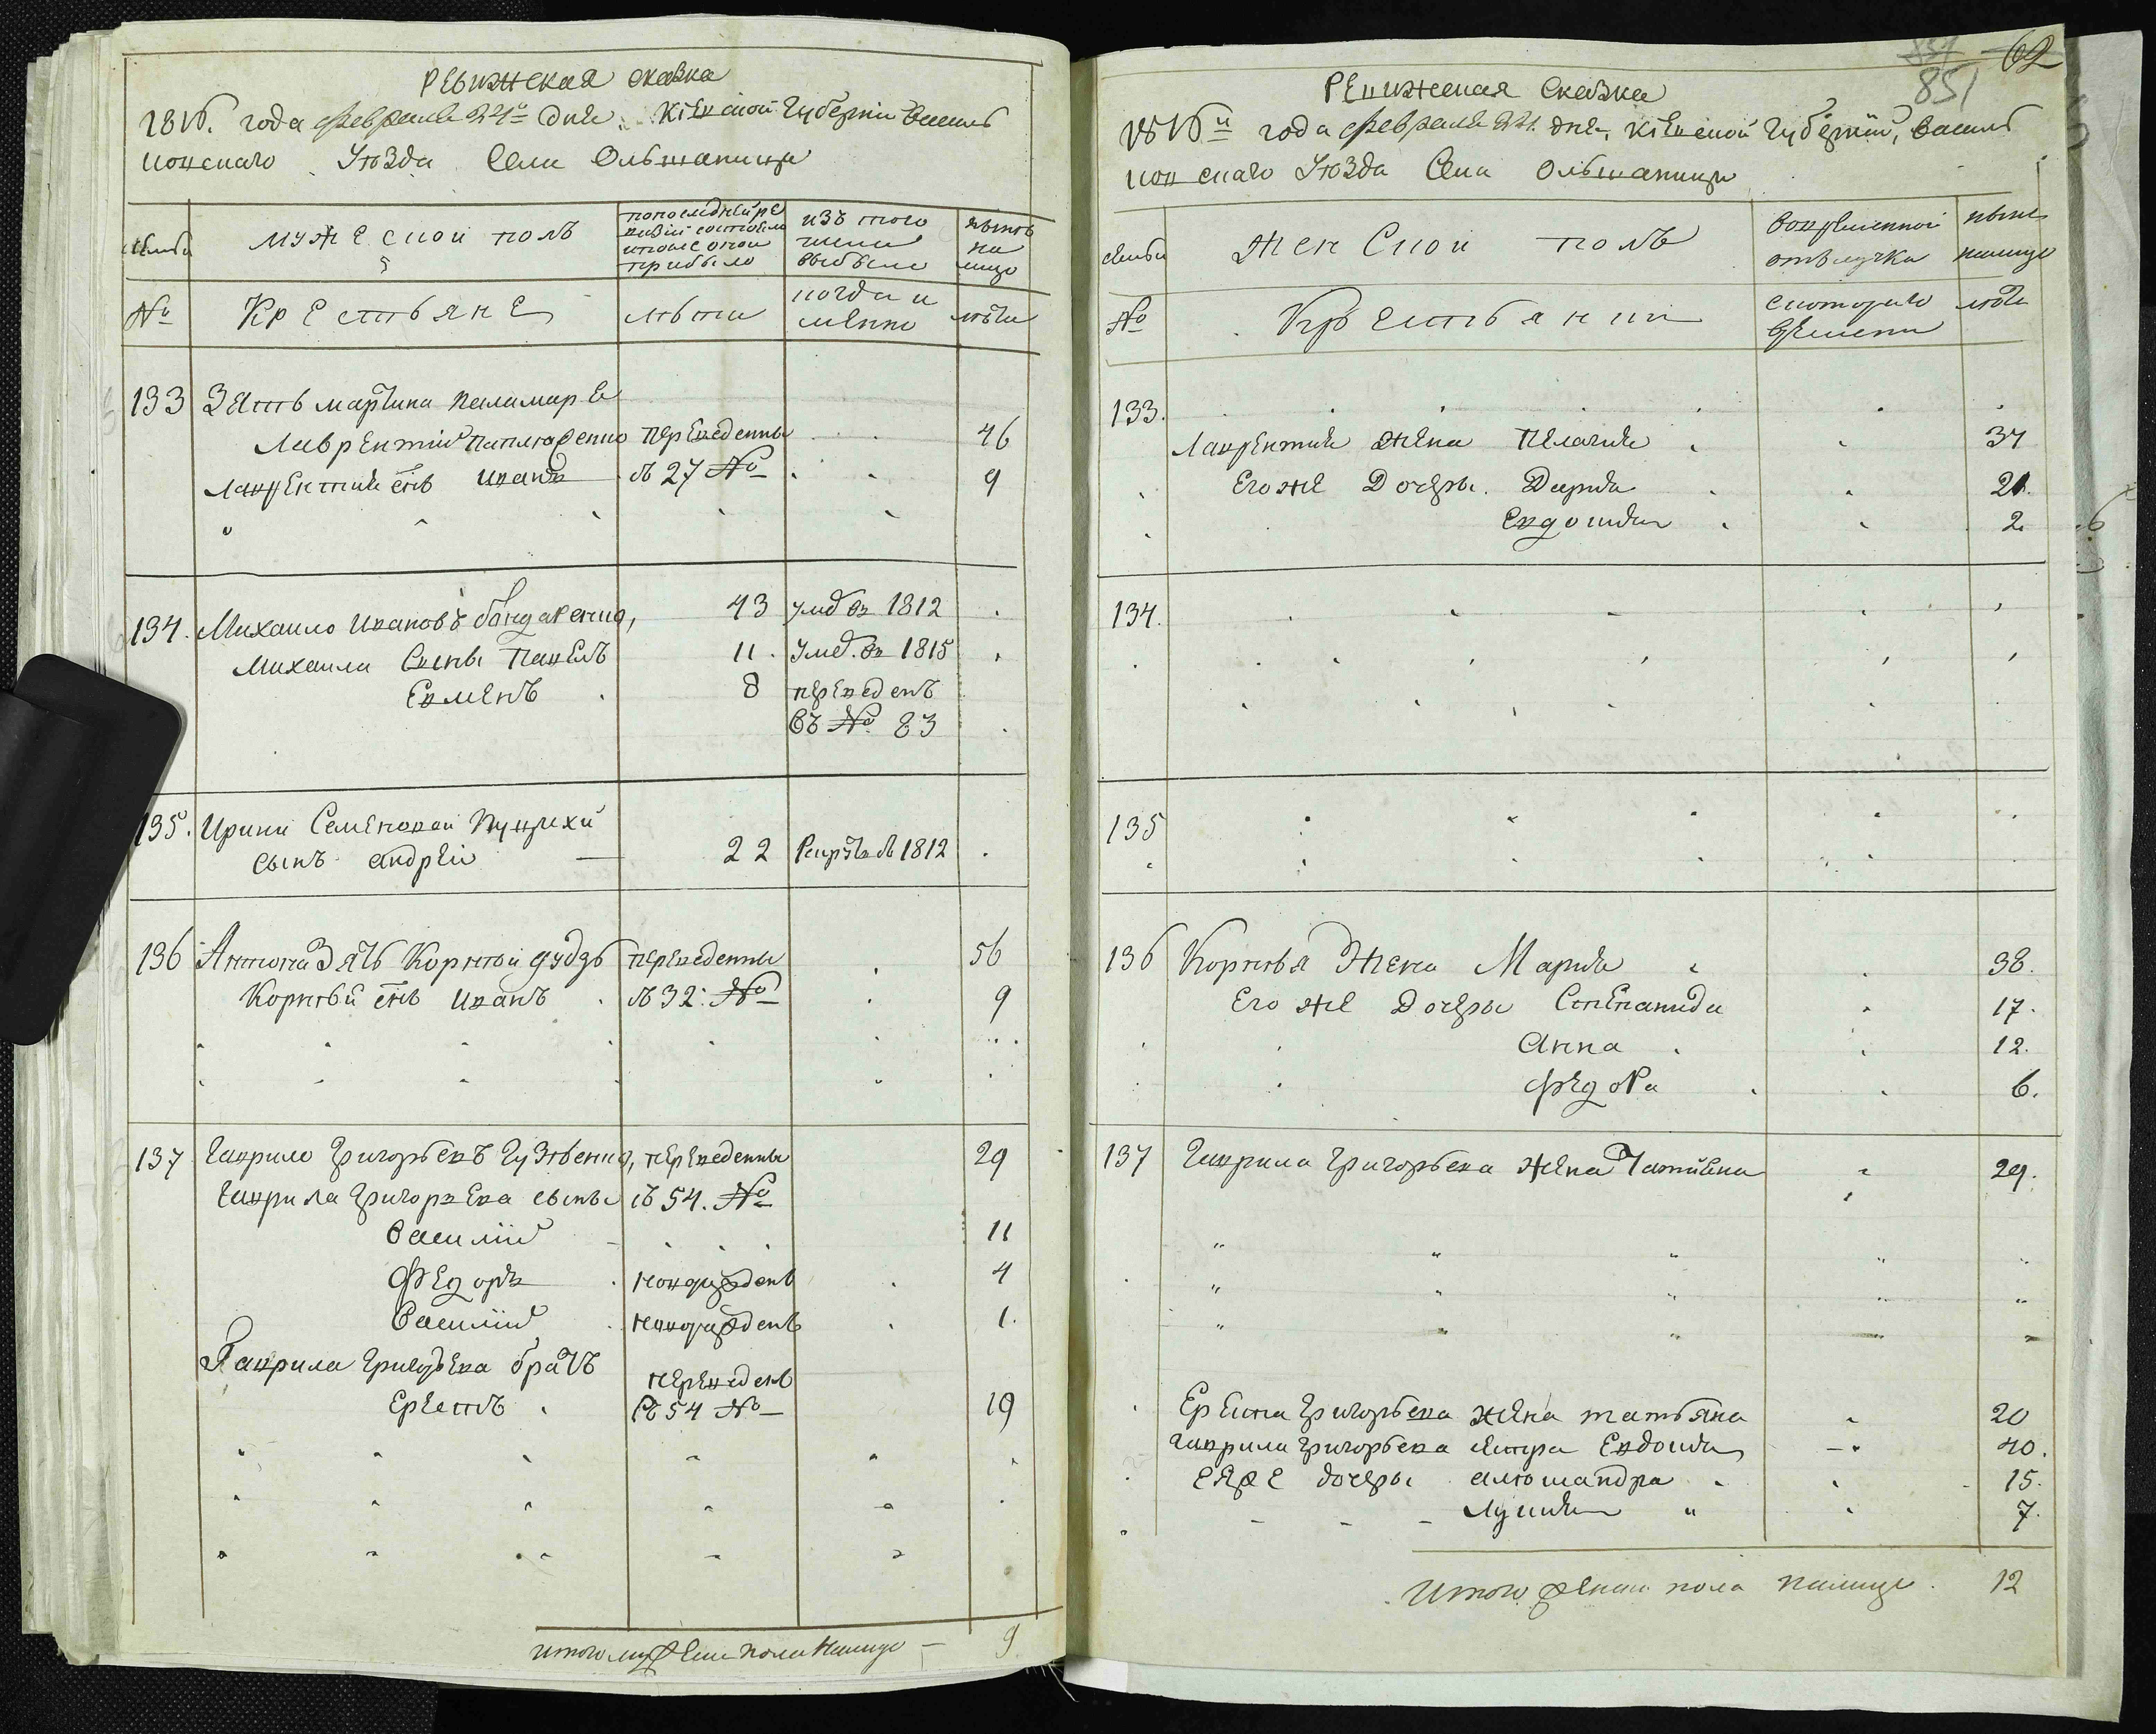 РЕвижская сказка
1816. года февраля 24го дня. Кіевской Губерніи Василь
ковскаго Уѣзда Села Ольшаници
семьи
мужескои полъ
попоследнейре
визіи состояло
ипосле онои
прибыло
изъ того
числа
выбыло
нынѣ
на
лицо
№
Крестьяне
лѣта
когда и
менно
лѣта
133 Зять мартина паламаря
Лаврентій переведенны 46
Лаврентия снъ иванъ съ 27 № 9
134. Михаило Ивановъ бондаренко, 43 умеръ въ 1812
Михаила Сыны Павелъ 11. Умеръ въ 1815
Евменъ 8 переведенъ
въ № 83
135. Ирини Семеновой
сынъ андрей 22 Рекрутъ въ 1812
136 Антона Зять Корнѣй дудзь переведенны 56
Корнѣй снъ иванъ съ 32: № 9
137 Гаврило Григорьевъ переведенны 29
Гаврила Григорьева сыны съ 54. №
Василій 11
Федоръ новорожденъ 4
Василій новорожденъ 1.
Гаврила Григорьева братъ переведенъ
Ерестъ съ 54 № 19
Итого мужеска пола налицо — 9
62
851
851
РЕвижская Сказка
1816го года февраля 24. дня, Кіевской Губерніи, Василь
ковскаго Уѣзда Села Ольшаници
семьи
женскои полъ
вовременной
отълучки
ныне
налицо
№
Крестьянки
скотораго
времени
лѣта
133.
Лаврентия жена Пелагия 37
Егоже Дочеры. Дария 21.
Евдокия 2
134.
135
136 Корнѣя Жена Мария 38.
Его же Дочеры Степанида 17.
Анна 12.
Федора 6.
137 Гаврила Григорьева жена Татияна 29.
Ереста Григорьева жена татьяна 20
Гаврила Григорьева сестра Евдокия 40.
ЕЯже дочеры алюшандра 15.
Лукия 7.
Итого женска пола налицо. 12